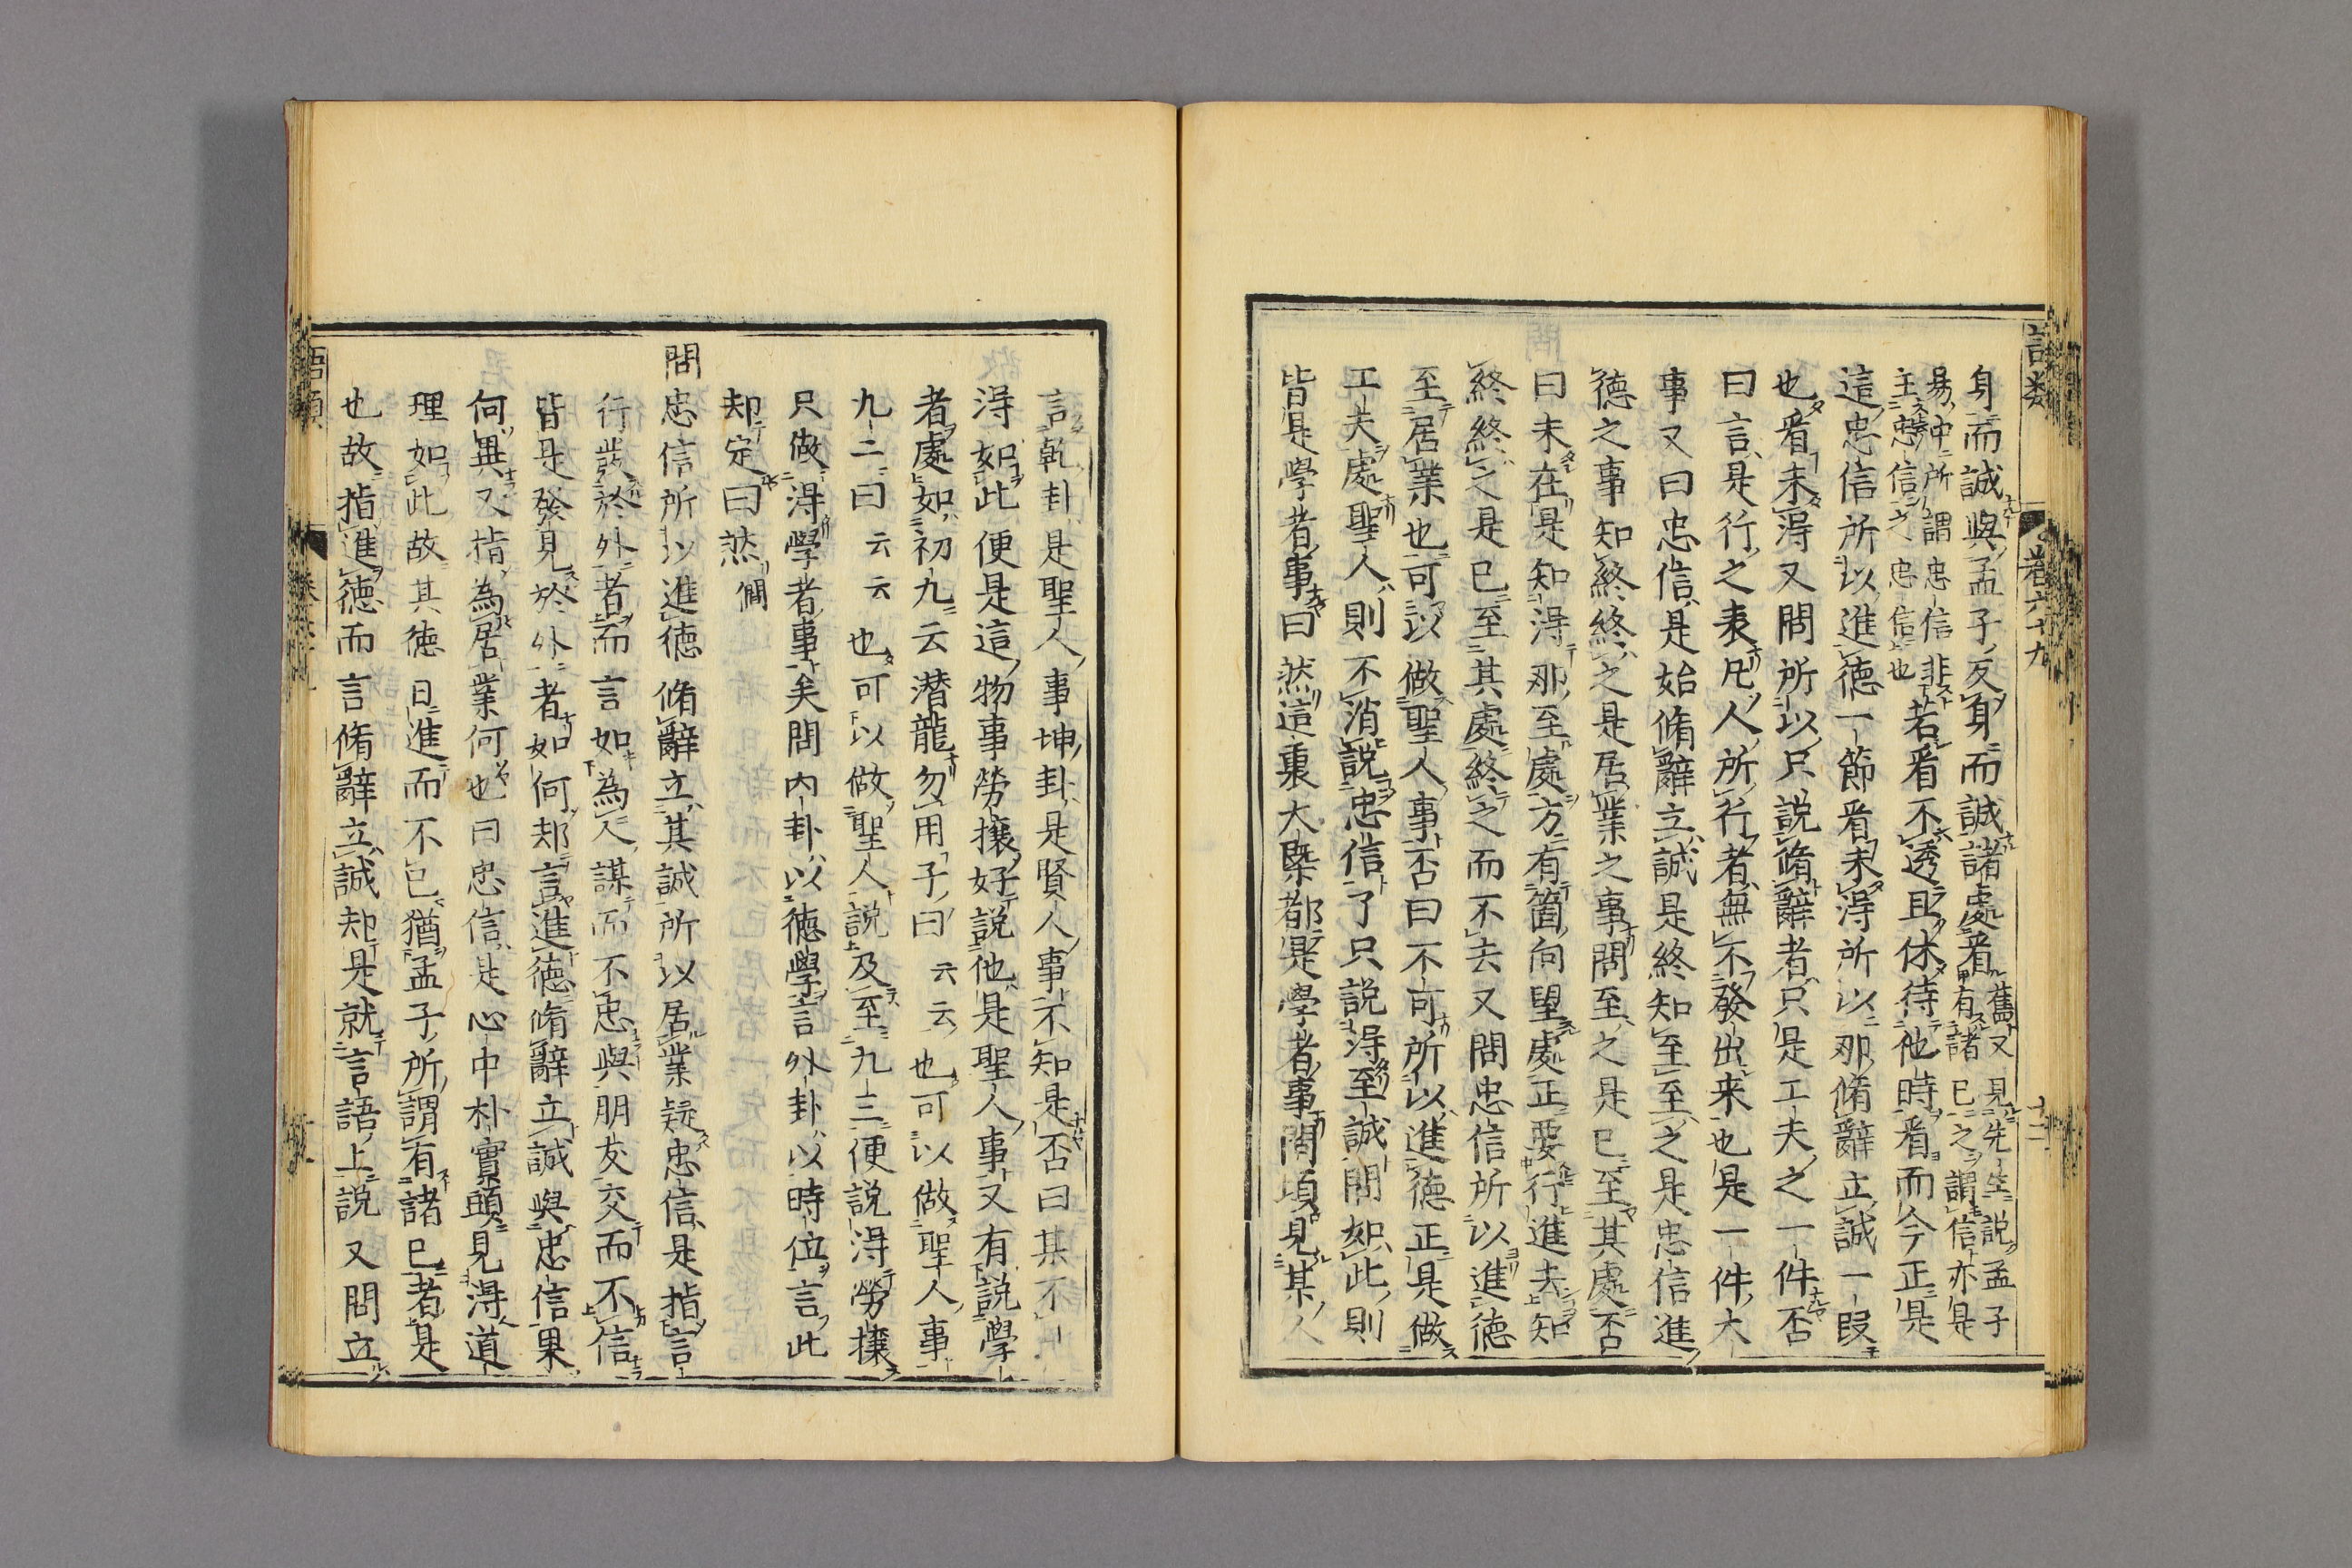 語類 卷六十九 十二
身而誠與孟子反身而誠諸處看舊又見先生説孟子
有諸已之謂信亦是
易中所謂忠信非
主忠信之忠信也若看不透且休待他時看而今正是
這忠信所以進德一節看未得所以那脩辭立誠一段
也看未得又問所以只説脩辭者只是工夫之一件否
曰言是行之表凡人所行者無不發出來也是一件大
事又曰忠信是始脩辭立誠是終知至至之是忠信進
德之事知終終之是居業之事問至之是已至其處否
曰未在是知得那至處方有箇向望處正要行進去知
終終之是已至其處終之而不去又問忠信所以進德
至居業也可以做聖人事否曰不可所以進德正是做
工夫處聖人則不消説忠信了只説得至誠問如此則
皆是學者事曰然這裏大槩都是學者事問頃見某人
言乾卦是聖人事坤卦是賢人事不知是否曰某不
得如此便是這物事勞攘好説他是聖人事又有説學
者處如初九云潛龍勿用子曰云云也可以做聖人事
九二曰云云也可以做聖人説及至九三便説得勞攘
只做得學者事矣問内卦以德學言外卦以時位言此
却定曰然僩
問忠信所以進德脩辭立其誠所以居業疑忠信是指言
行發於外者而言如為人謀而不忠與朋友交而不信
皆是發見於外者如何却言進德脩辭立誠與忠信果
何異又指為居業何也曰忠信是心中朴實頭見得道
理如此故其德日進而不已猶孟子所謂有諸已者是
也故指進德而言脩辭立誠却是就言語上説又問立
語類